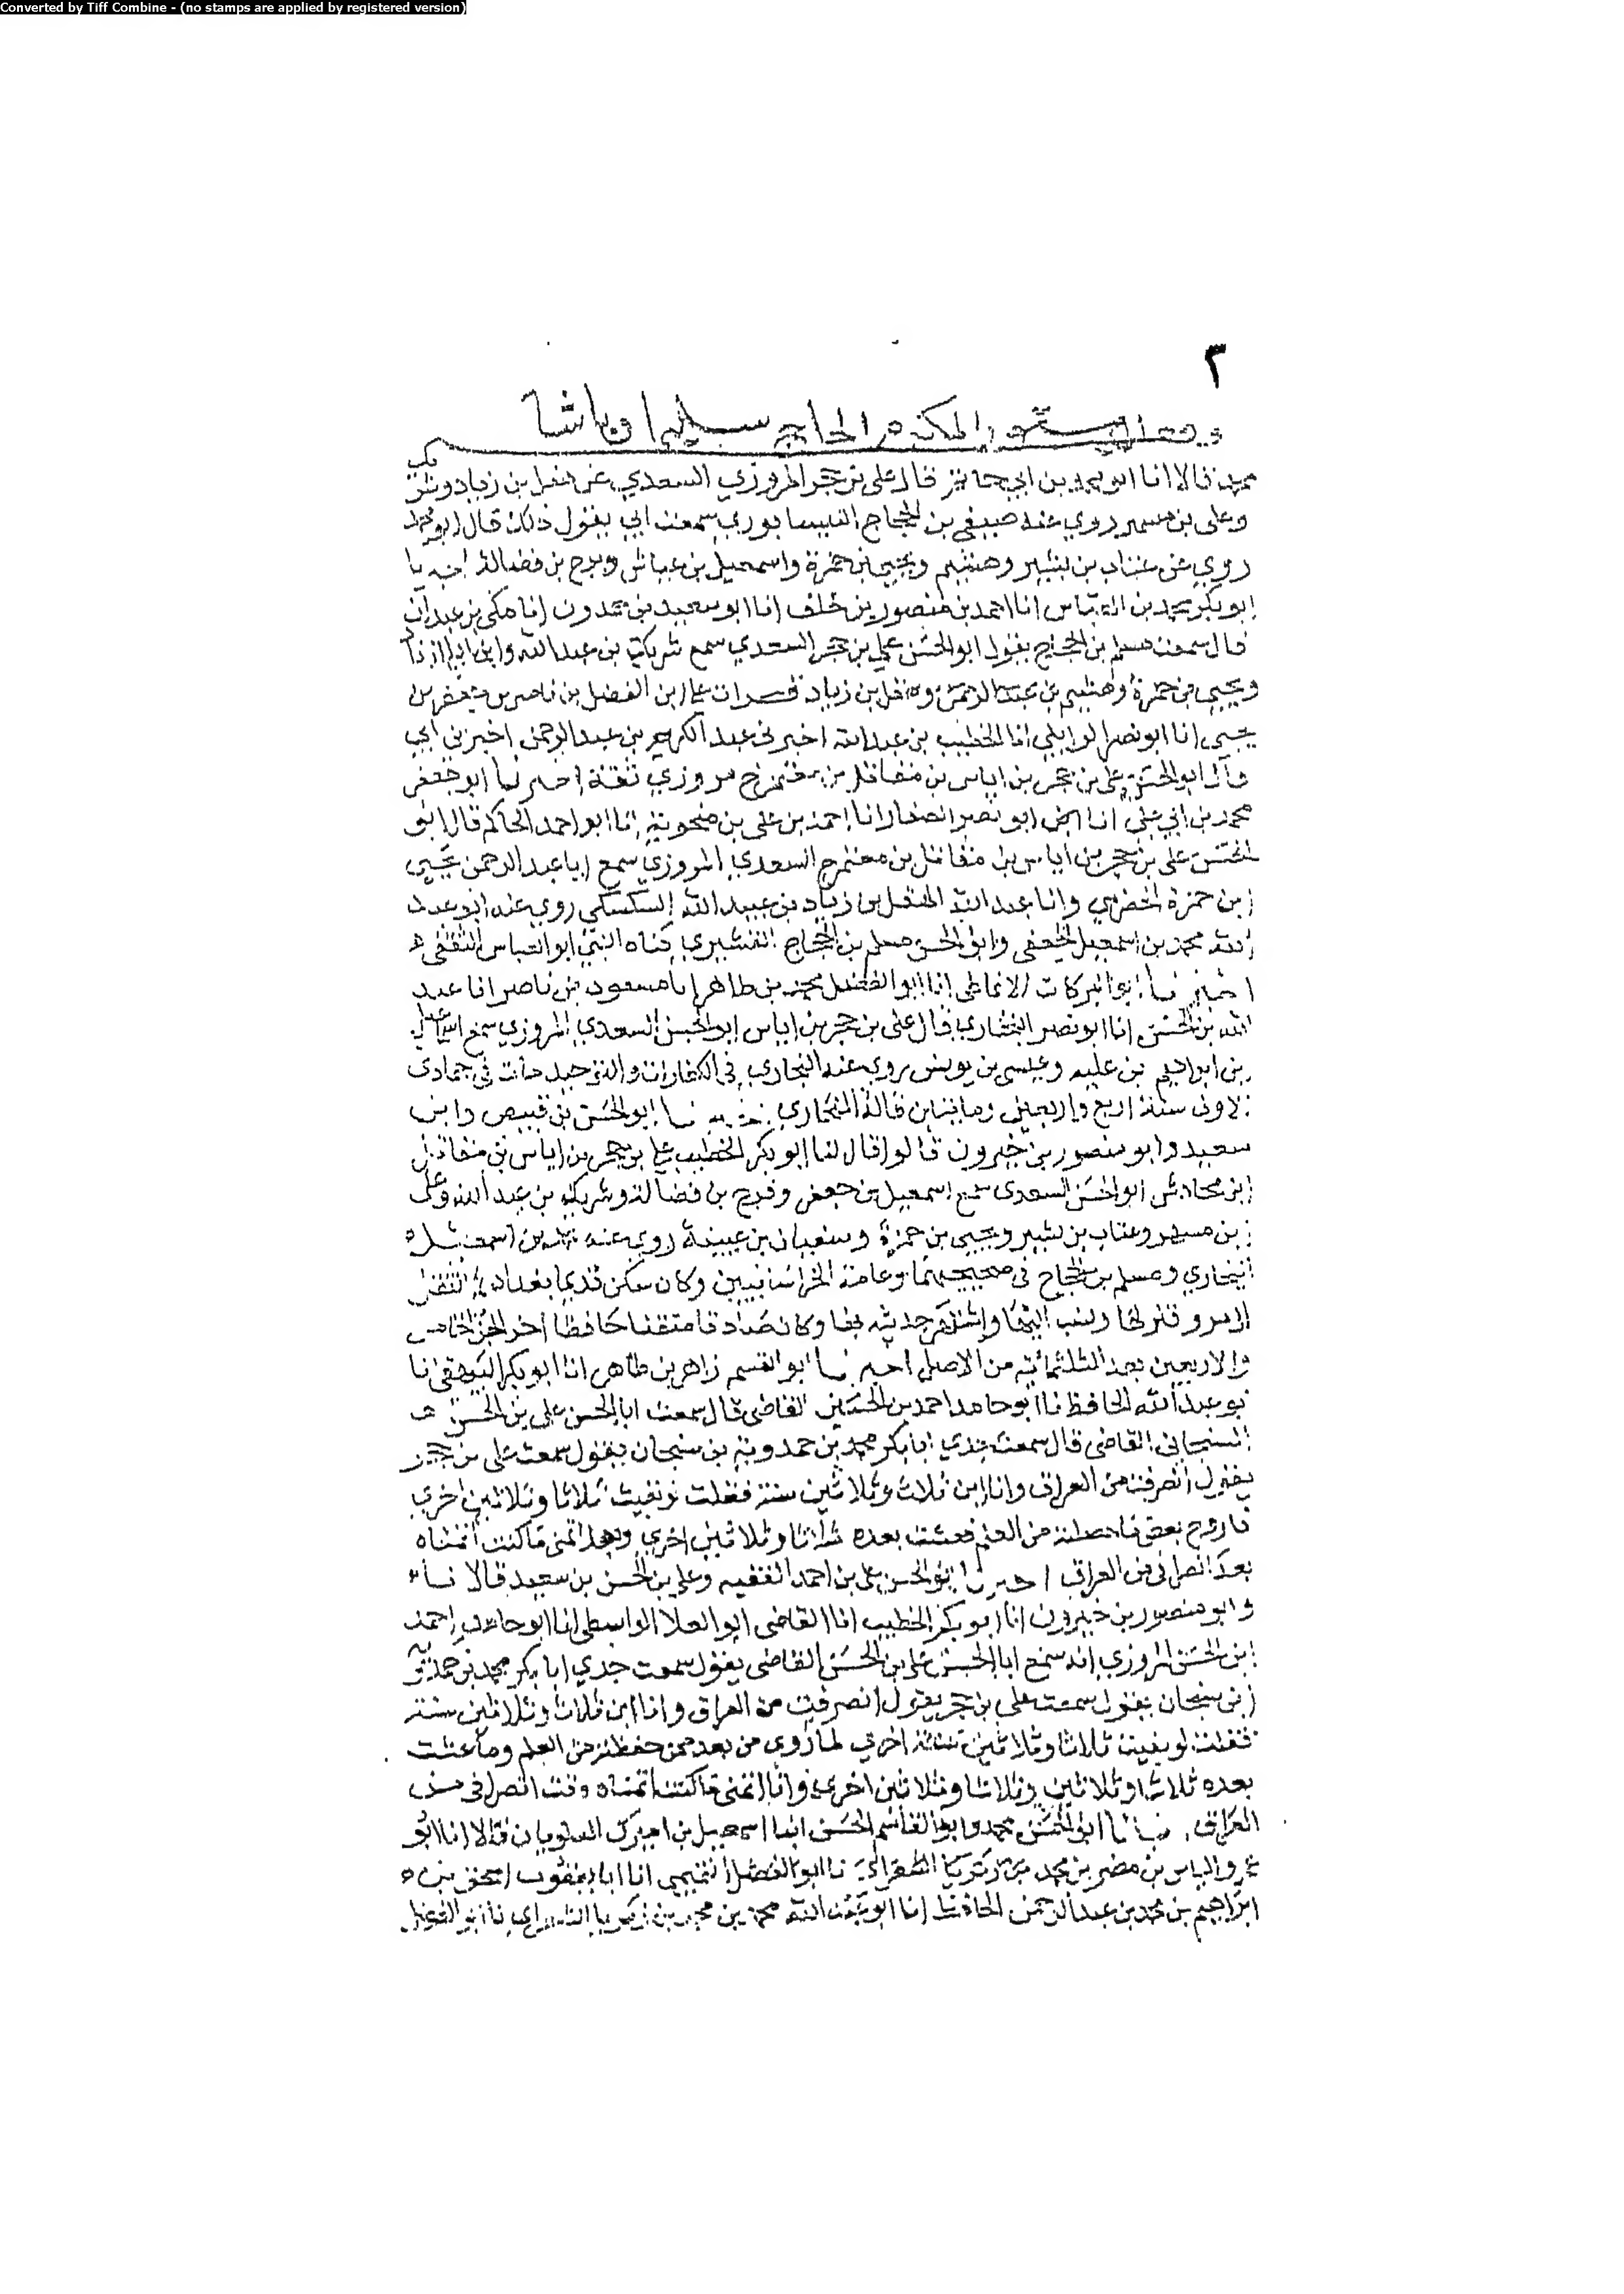 Converted by Tiff Combine - (no stamps are applied by registered version)
٣
الحاج سليمان باشا
محمد قالا انا ابو محمد بن ابي حاتم قال علي بن حجر المروزي السعدي عن هقل بن زياد
وعلي بن مسهر روي عنه صيفي بن الحجاج النيسابوري سمعت ابي يقول ذلك قال ابو محمد
روي عن عتاب بن بشير وهشيم ويحيى بن حمزة واسمعيل بن عياش وفرج بن فضالة اخبرنا
ابو بكر محمد بن العباس انا احمد بن منصور بن خلف انا ابو سعيد بن حمدون انا مكي بن عبدان
قال سمعت مسلم بن الحجاج يقول ابو الحسن علي بن حجر السعدي سمع شريك بن عبد الله وابن ابي الزناد
ويحيى بن حمزة وهشيم بن وهقل بن زياد قرات علي ابن الفضل بن ناصر بن جعفر بن
يحيى انا ابو نصر الوايلي انا الخطيب بن عبد الله اخبرني عبد الكريم بن عبد الرحمن اخبرني ابي
قال ابو الحسن علي بن حجر بن اياس بن مقاتل بن مروزي ثقة اخبرنا ابو جعفر
محمد بن ابي علي انا ابو بكر الصفار انا احمد بن علي بن منجويه انا ابو احمد الحاكم قال ابو
الحسن علي بن حجر بن اياس بن مقاتل بن السعدي المروزي سمع ابا عبد الرحمن يحيى
ابن حمزة الحضرمي وابا عبد الله الهقل بن زياد بن عبيد الله السكسكي روي عنه ابو عبد
الله محمد بن اسمعيل الجعفي وابو الحسن مسلم بن الحجاج القشيري كناه النبي ابو العباس الثقفي ه
اخبرنا ابو البركات الانماطي انا ابو الفضل محمد بن طاهر انا مسعود بن ناصر انا عبد
الله بن الحسن انا ابو نصر البخاري قال علي بن حجر بن اياس ابو الحسن السعدي المروزي سمع اسمعيل
بن ابراهيم بن علية وعيسى بن يونس روي عنه البخاري في الكفارات والتوحيد مات في جمادى
الاولى سنة اربع واربعين ومايتين قاله البخاري ابو الحسن بن قبيس وابن
سعيد وابو منصور بن خيرون قالوا قال لنا ابو بكر الخطيب علي بن حجر بن اياس بن مقاتل
ابن مخادش ابو الحسن السعدي سمع اسمعيل بن جعفر وفرج بن فضالة وشريك بن عبد الله وعلي
بن مسهر وعتاب بن بشير ويحيى بن حمزة وسفيان بن عيينة روي عنه محمد بن اسمعيل
البخاري ومسلم بن الحجاج في صحيحيهما وعامة الخراسانيين وكان سكن قديما بغداد ثم انتقل
الى مرو فنزلها ونسب اليها واشتهر حديثه بها وكان صادقا متقنا حافظا اخر الجزء الخامس
والاربعين بعد الثلثمائة من الاصل اخبرنا ابو القسم زاهر بن طاهر انا ابو بكر البيهقي انا
ابو عبد الله الحافظ نا ابو حامد احمد بن الحسين القاضي قال سمعت ابا الحسن علي بن الحسن
السنجاني القاضي قال سمعت جدي ابا بكر محمد بن حمدويه بن سنجان يقول سمعت علي بن حجر
يقول انصرفت من العراق وانا ابن ثلاث وثلاثين سنة فقلت لو بقيت ثلاثا وثلاثين اخرى
فاروج بعض ما حصلته من العلم فعشت بعده ثلاثا وثلاثين اخرى وبعد اتمنى ما كنت اتمناه
بعد انصرافي من العراق اخبرنا ابو الحسن علي بن احمد الفقيه وعلي بن الحسن بن سعيد قالا نا
وابو منصور بن خيرون انا ابو بكر الخطيب انا القاضي ابو العلا الواسطي انا ابو حامد احمد
ابن الحسن المروزي انه سمع ابا الحسن علي بن الحسن القاضي يقول سمعت جدي ابا بكر محمد بن حمدويه
ابن سنجان يقول سمعت علي بن حجر يقول انصرفت من العراق وانا ابن ثلاث وثلاثين سنة
فقلت لو بقيت ثلاثا وثلاثين سنة اخرى لما روي من بعدهن حفظته من العلم وما عشت
بعده ثلاثا وثلاثين وثلاثا وثلاثين اخرى وانا اتمنى ما كنت اتمناه وقت انصرافي من
العراق انبانا ابو الحسن محمد وابو القاسم الحسن ابنا اسمعيل بن اميرك العلويان قالا انا ابو
عمرو الياس بن مضر بن محمد بن نا ابو الفضل التميمي انا ابا يعقوب اسحق بن ه
ابراهيم بن محمد بن عبد الرحمن الحافظ انا ابو عبد الله محمد بن محمد بن زكريا نا ابو الفضل